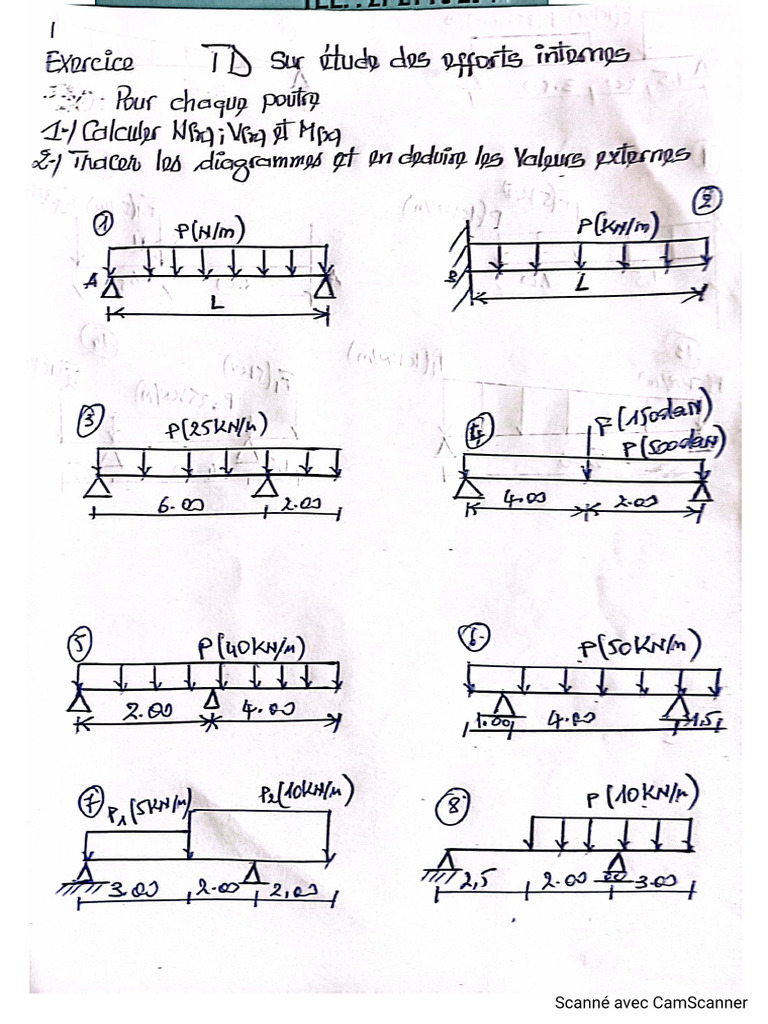 1
Exercice TD sur étude des efforts internes
Pour chaque poutre
1-) Calculer N(x) ; V(x) et M(x)
2-) Tracer les diagrammes et en deduire les Valeurs externes
① P(N/m)
A
L
② P(KN/m)
B
L
③ P(25KN/m)
6.00 2.00
④ F(150daN)
P(500daN)
4.00 2.00
⑤ P(40KN/m)
2.00 4.00
⑥ P(50KN/m)
1.00 4.00 1,5
⑦ P1(5KN/m) P2(10KN/m)
3.00 2.00 2,00
⑧ P(10KN/m)
2,5 2.00 3.00
Scanné avec CamScanner